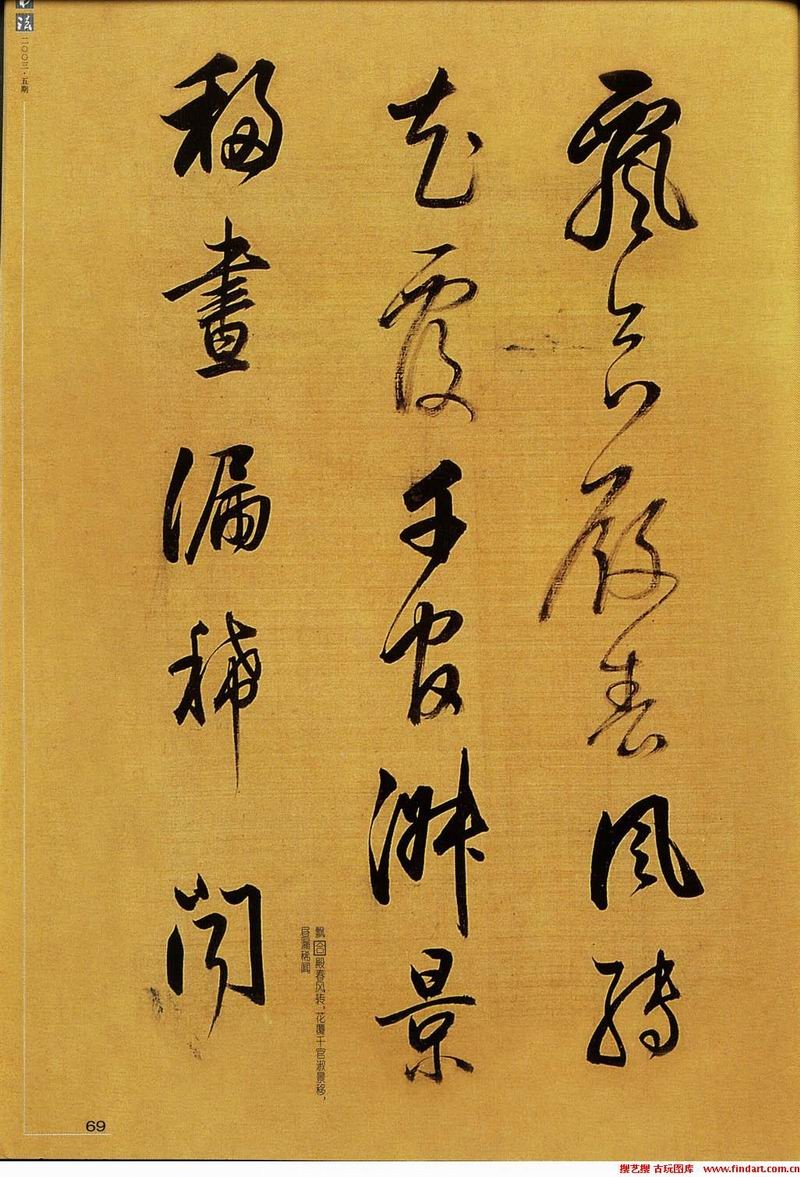 法
二〇〇三·五期
飘合殿春风转
花覆千官淑景
移昼漏稀闻
飘合殿春风转，花覆千官淑景移，
昼漏稀闻
69
搜艺搜 古玩图库 www.findart.com.cn